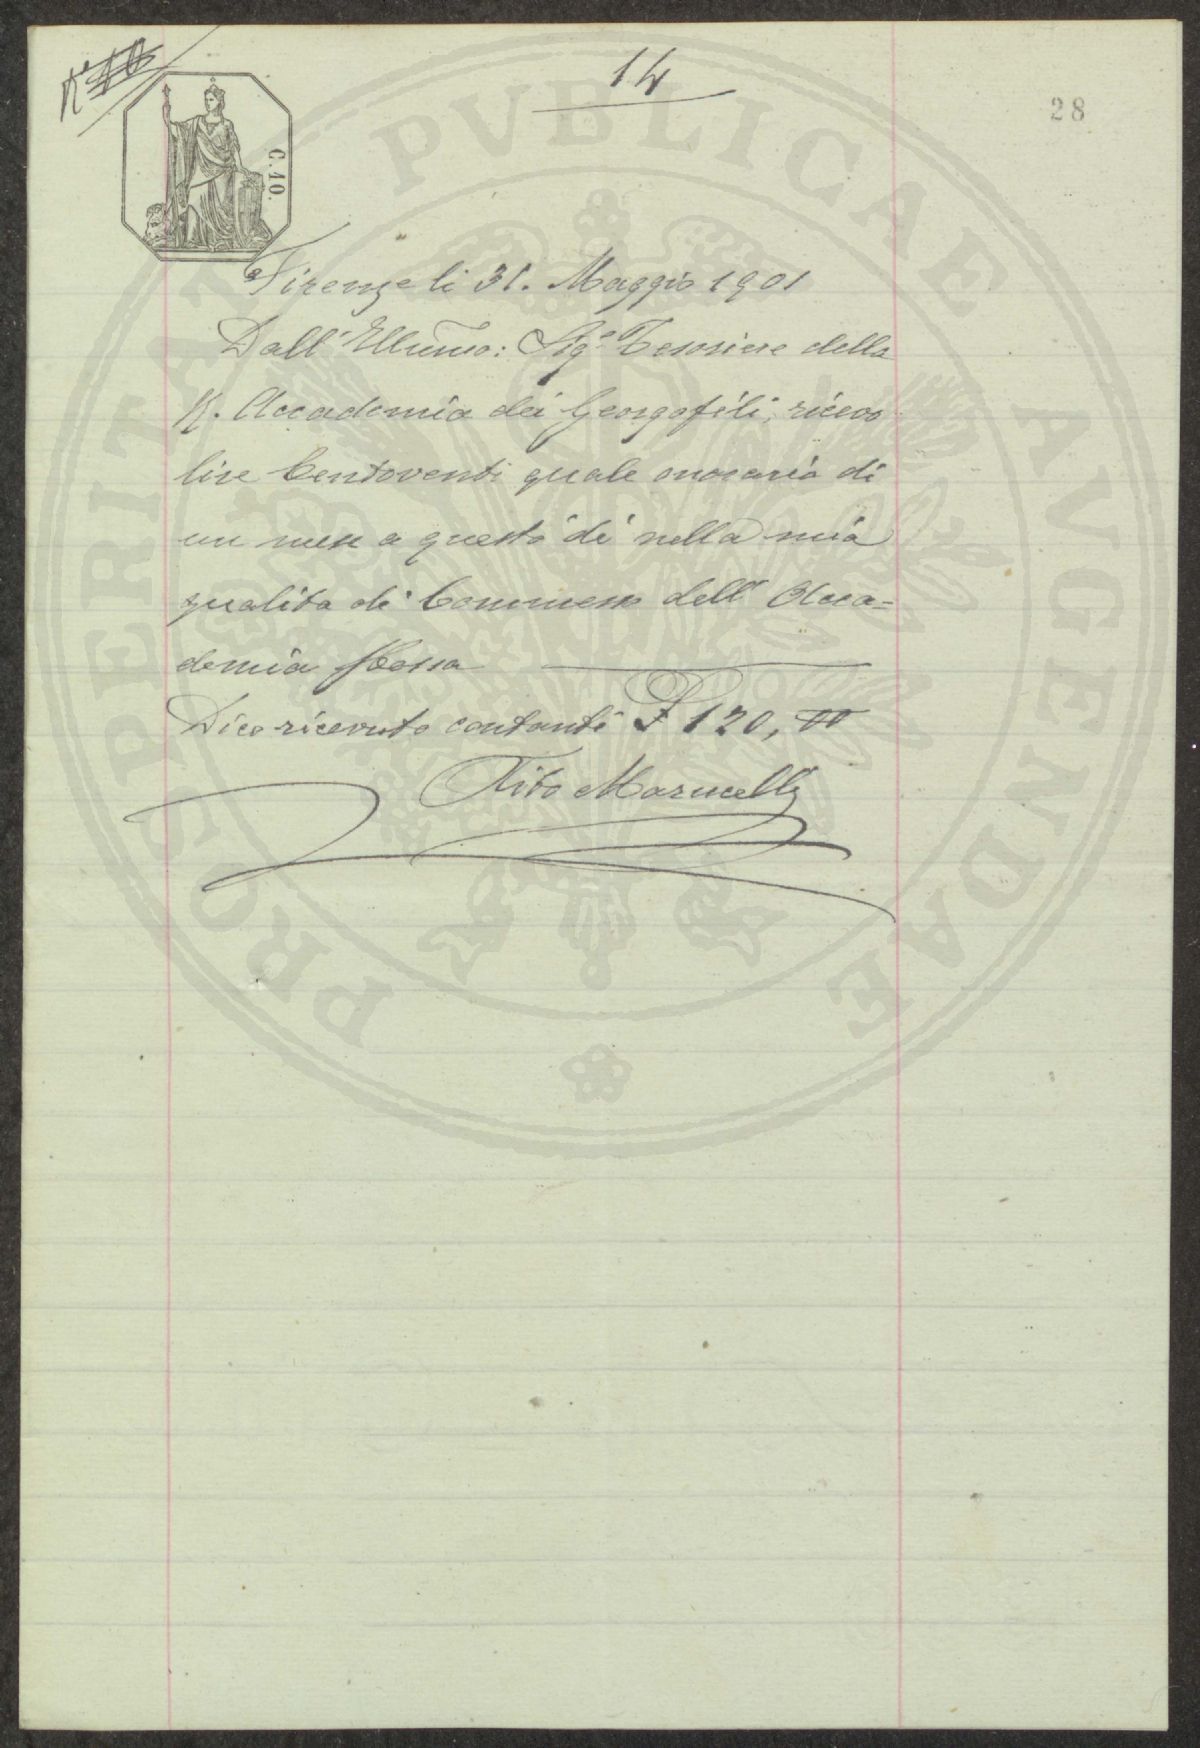 N° 10
14
28
C. 10.
Firenze li 31. Maggio 1901
Dall' Illumo: Sigr Tesoriere della
R. Accademia dei Georgofili, ricevo
lire Centoventi quale onorario di
un mese a questo dì nella mia
qualità di Commesso dell' Acca=
demia stessa
Dico ricevuto contanti £ 120, 00
Tito Marucelli
PROSPERITATI PVBLICAE AVGENDAE